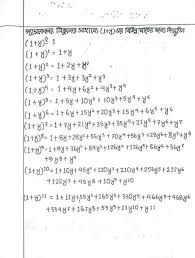 প্যাসকেলের ত্রিভুজের সাহায্যে (1+y) এর বিস্তৃতি
(1+y)⁰ 1
(1+y)¹ = 1+y
(1+y)² = 1+2y+y²
(1+y)³ = 1+3y+3y²+y3
(1+y)⁴ = 1+4y+6y²+4y3+y4
(1+y)5 = 1+5y+10y²+10y3+5y4+y5
(1+y)6 = 1+6y+15y²+20y3+15y4+6y5+y6
(1+y)7 = 1+7y+21y²+35y3+35y4+21y5+7y6+y7
(1+y)8 = 1+8y+28y²+56y3+70y4+56y5+28y6+8y7+y8
(1+y)9 = 1+9y+36y²+84y3+126y4+126y5+84y6+36y7
+9y8+y9
(1+y)10 = 1+10y+45y²+120y3+210y4+252y5+210y6
+120y7+45y8+10y9+y10
(1+y)11 = 1+11y+55y²+165y3+330y4+466y5+466y6
+330y7+165y8+55y9+11y10+y11